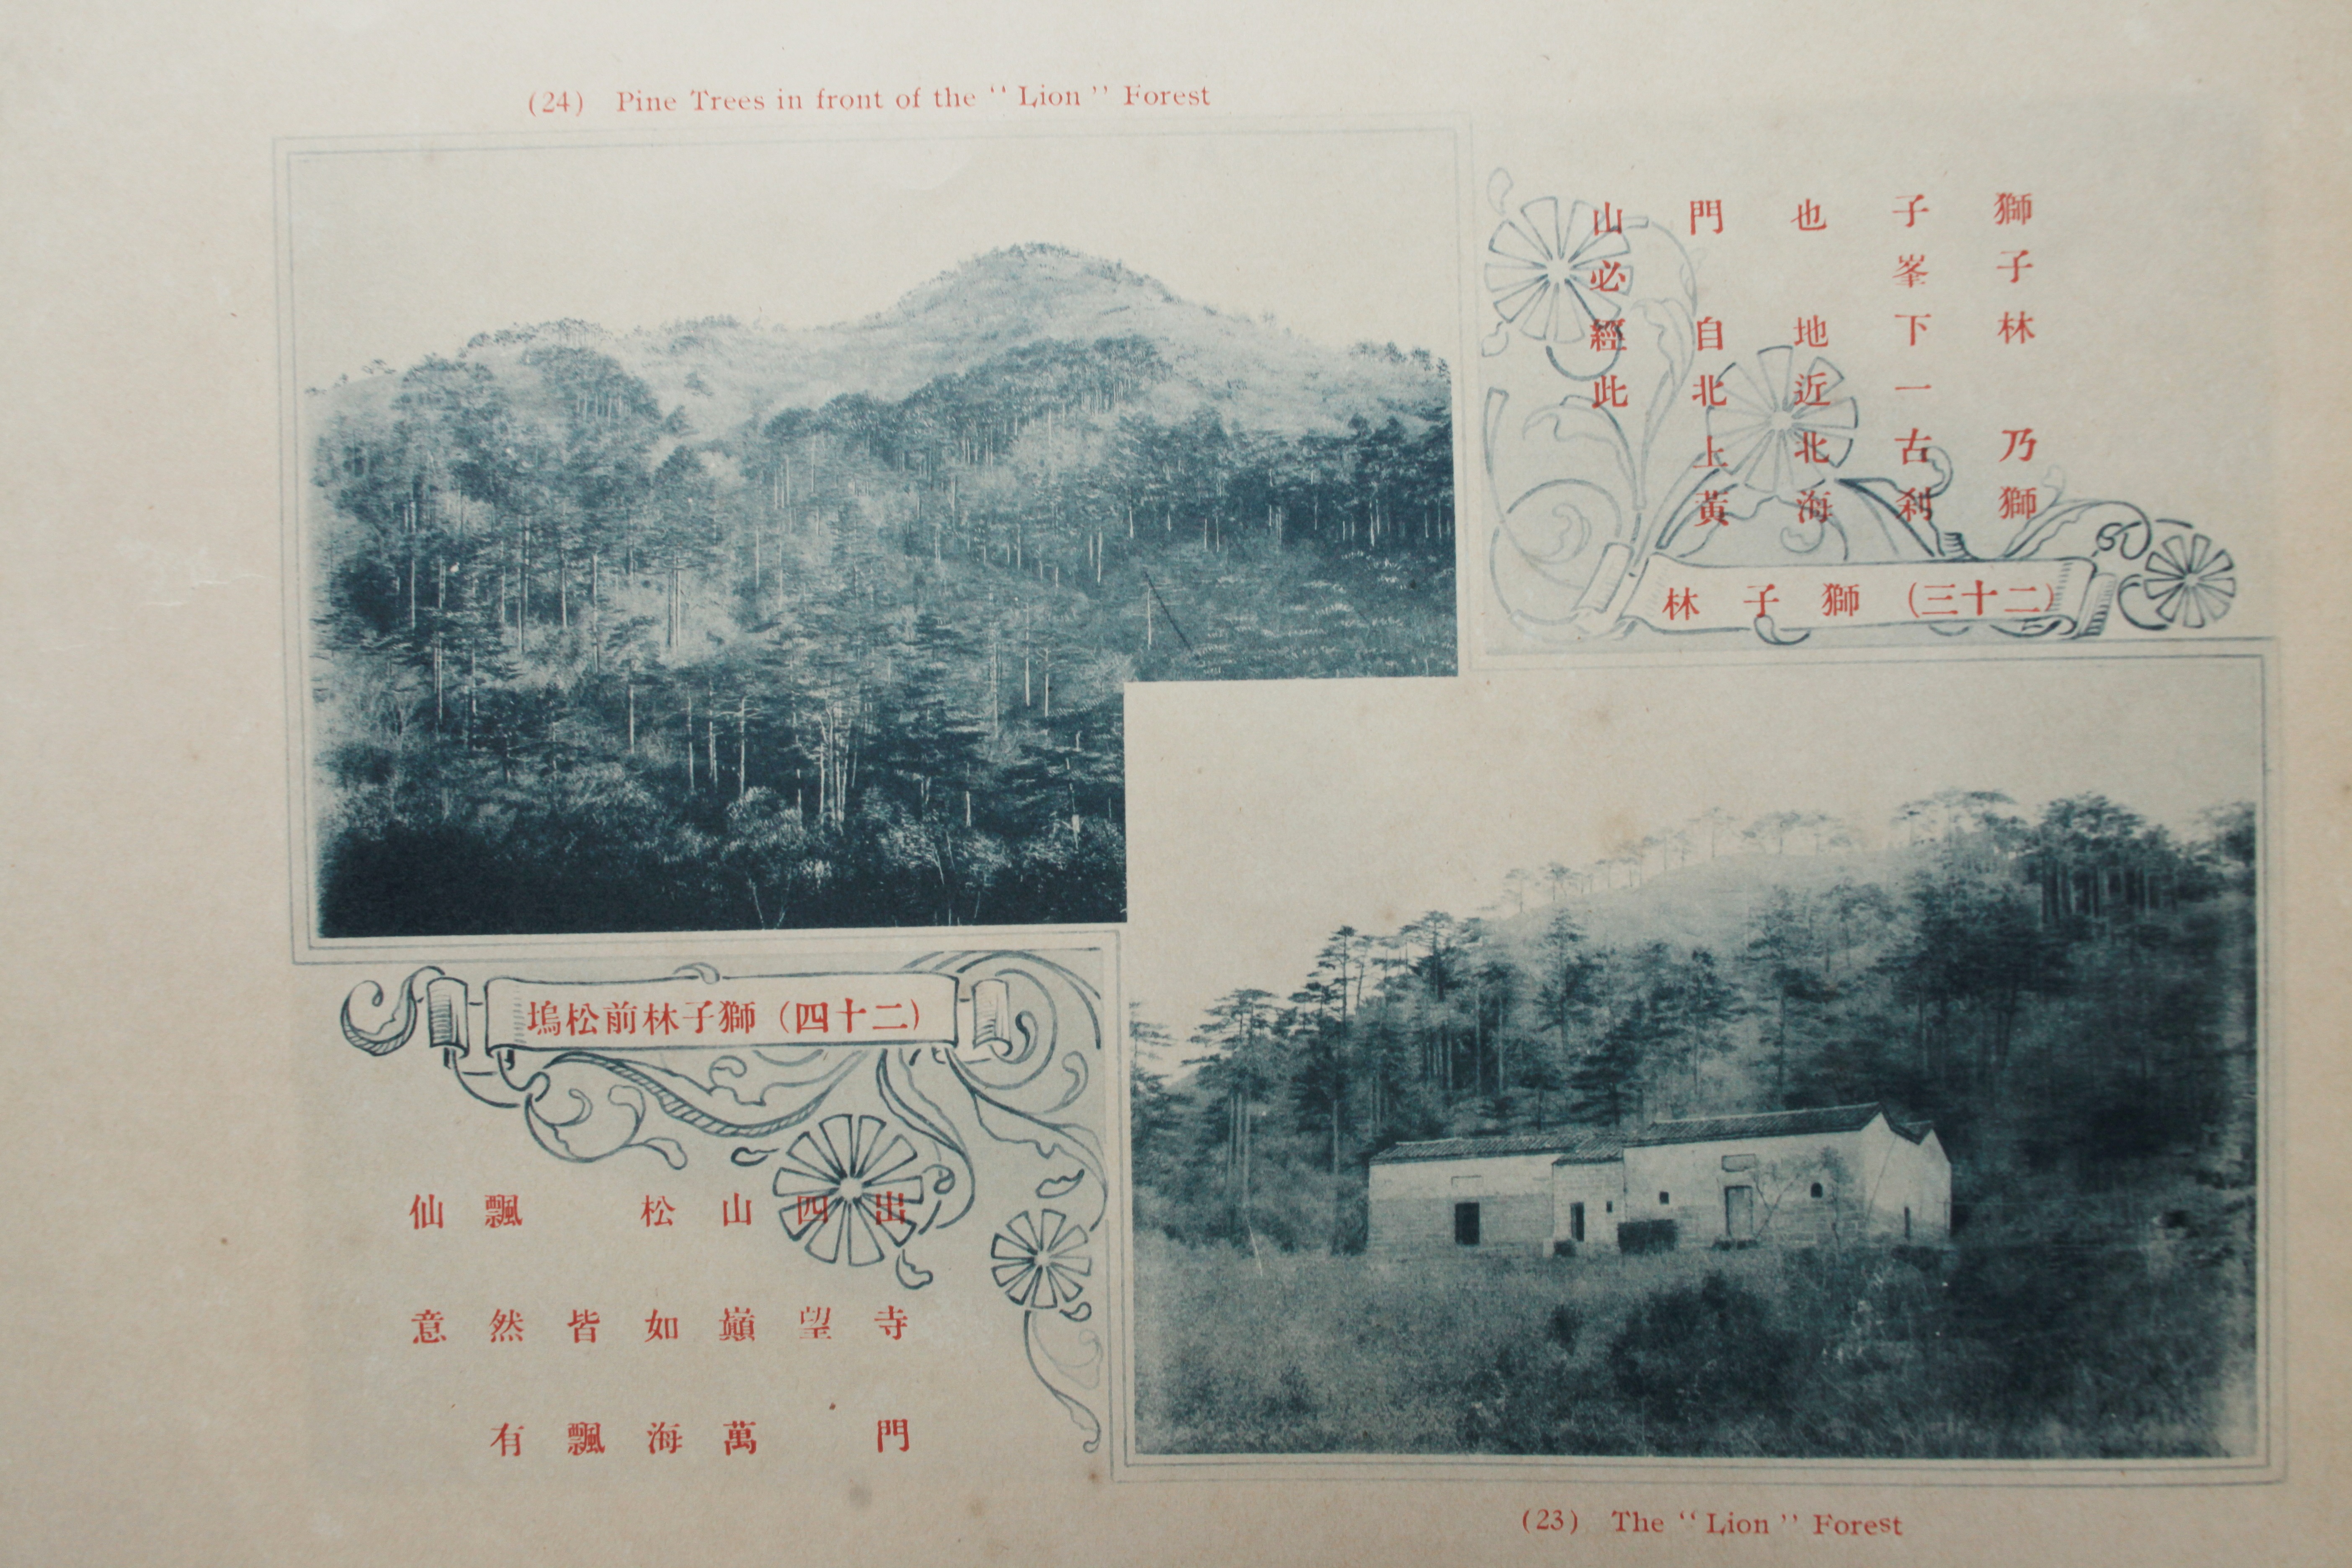 (24) Pine Trees in front of the “ Lion ” Forest
獅子林 乃獅
子峯下一古刹
也 地近北海
門 自北上黃
山必經此
(二十三) 獅子林
(二十四) 獅子林前松塢
出寺門
四望
山巔萬
松如海
皆飄
飄然有
仙意
(23) The “ Lion ” Forest